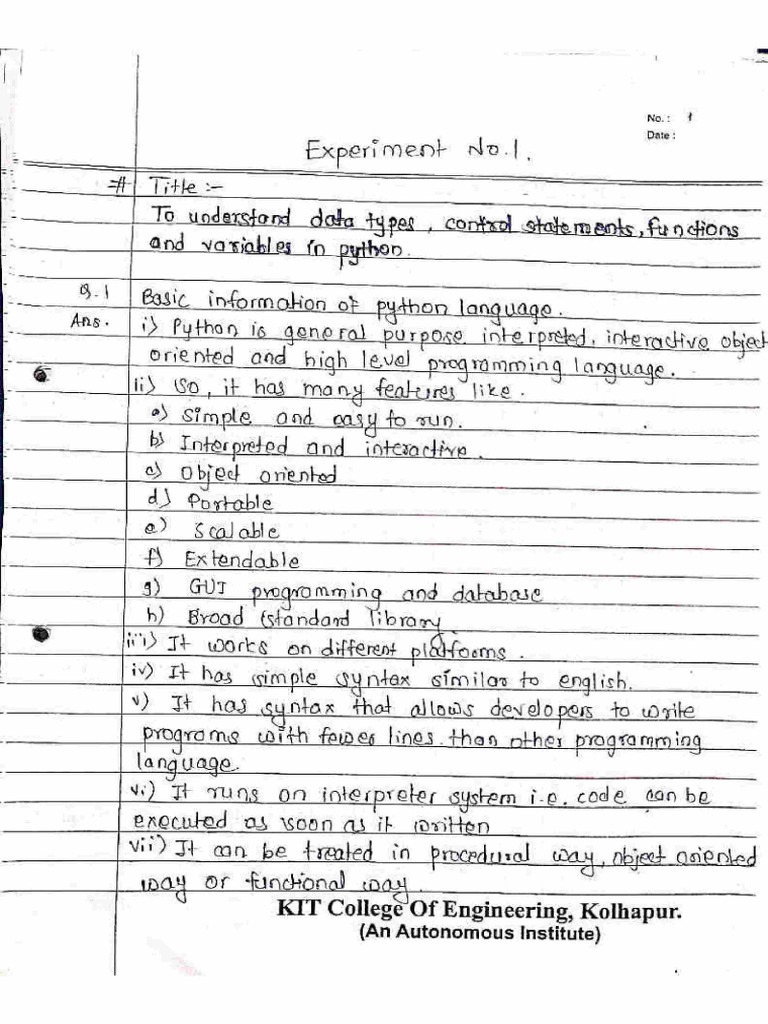 No. : 1
Date :
Experiment No.1.
# Title :-
To understand data types, control statements, functions
and variables in python.
Q.1 Basic information of python language.
Ans. i) Python is general purpose interpreted, interactive object
oriented and high level programming language.
ii) So, it has many features like.
a) Simple and easy to run.
b) Interpreted and interactive.
c) Object oriented
d) Portable
e) Scalable
f) Extendable
g) GUI programming and database
h) Broad standard library
iii) It works on different platforms.
iv) It has simple syntax similar to english.
v) It has syntax that allows developers to write
programs with fewer lines than other programming
language.
vi) It runs on interpreter system i.e. code can be
executed as soon as it written
vii) It can be treated in procedural way, object oriented
way or functional way.
KIT College Of Engineering, Kolhapur.
(An Autonomous Institute)